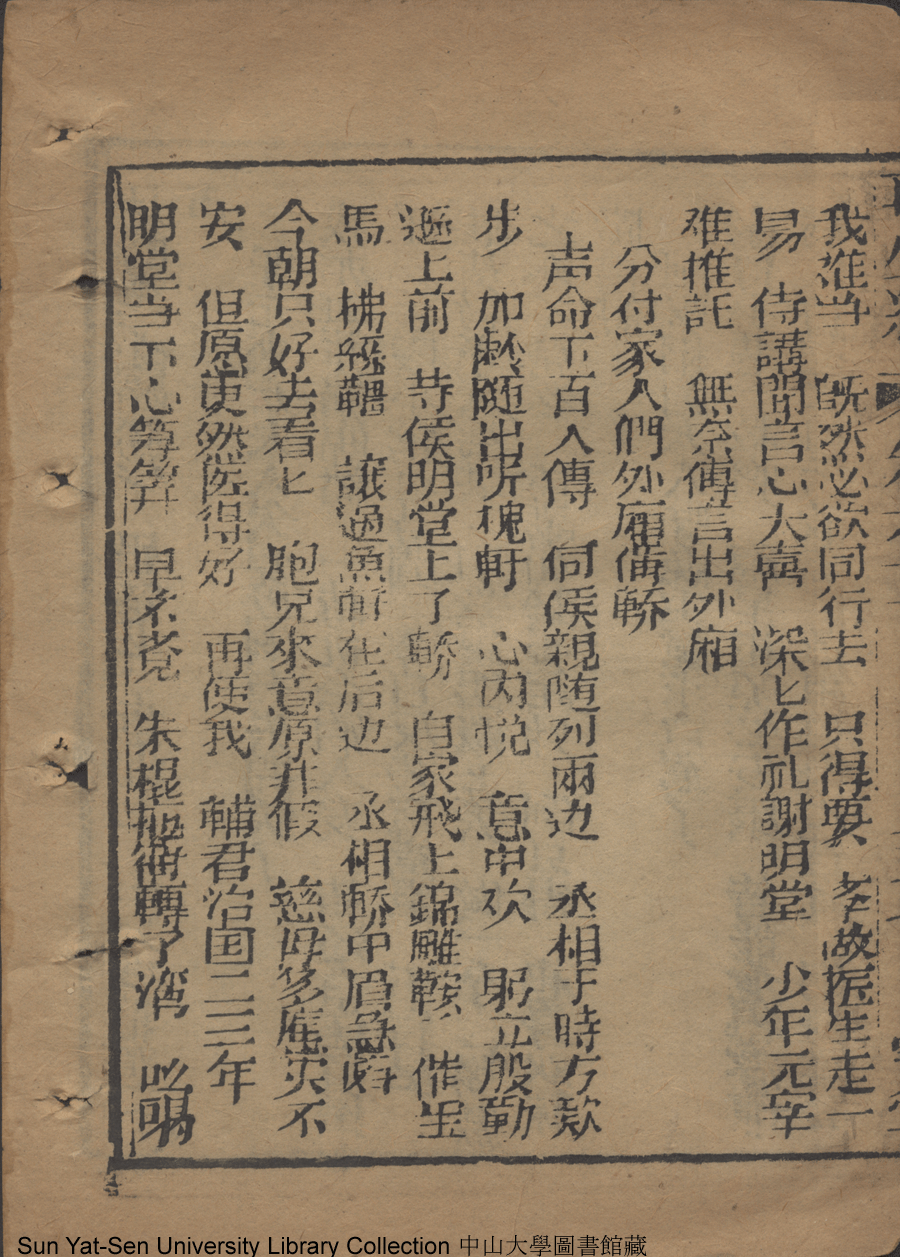 我准当　既然必欲同行去　只得要　孝敬医生走一
易　侍講聞言心大喜　深匕作礼謝明堂　少年元宰
难推託　無奈傳言出外廂
分付家人們外廂俻轎
声命下百人傳　伺侯親随列兩边　丞相于時方欵
步　加齡随出听槐軒　心内悦　意中欢　躬立殷勤
上前　侍侯明堂上了轎　自家飛上錦雕鞍　催
馬　拂絲韁　譲過魚軒在后边　丞相轎中眉急皺
今朝只好去看匕　胞兄來意原非假　慈母多應实不
安　但愿吏然医得好　再使我　輔君治国二三年
明堂当下心等算　早不覚　朱棍搬開轉了湾
Sun Yat-Sen University Library Collection 中山大學圖書館藏